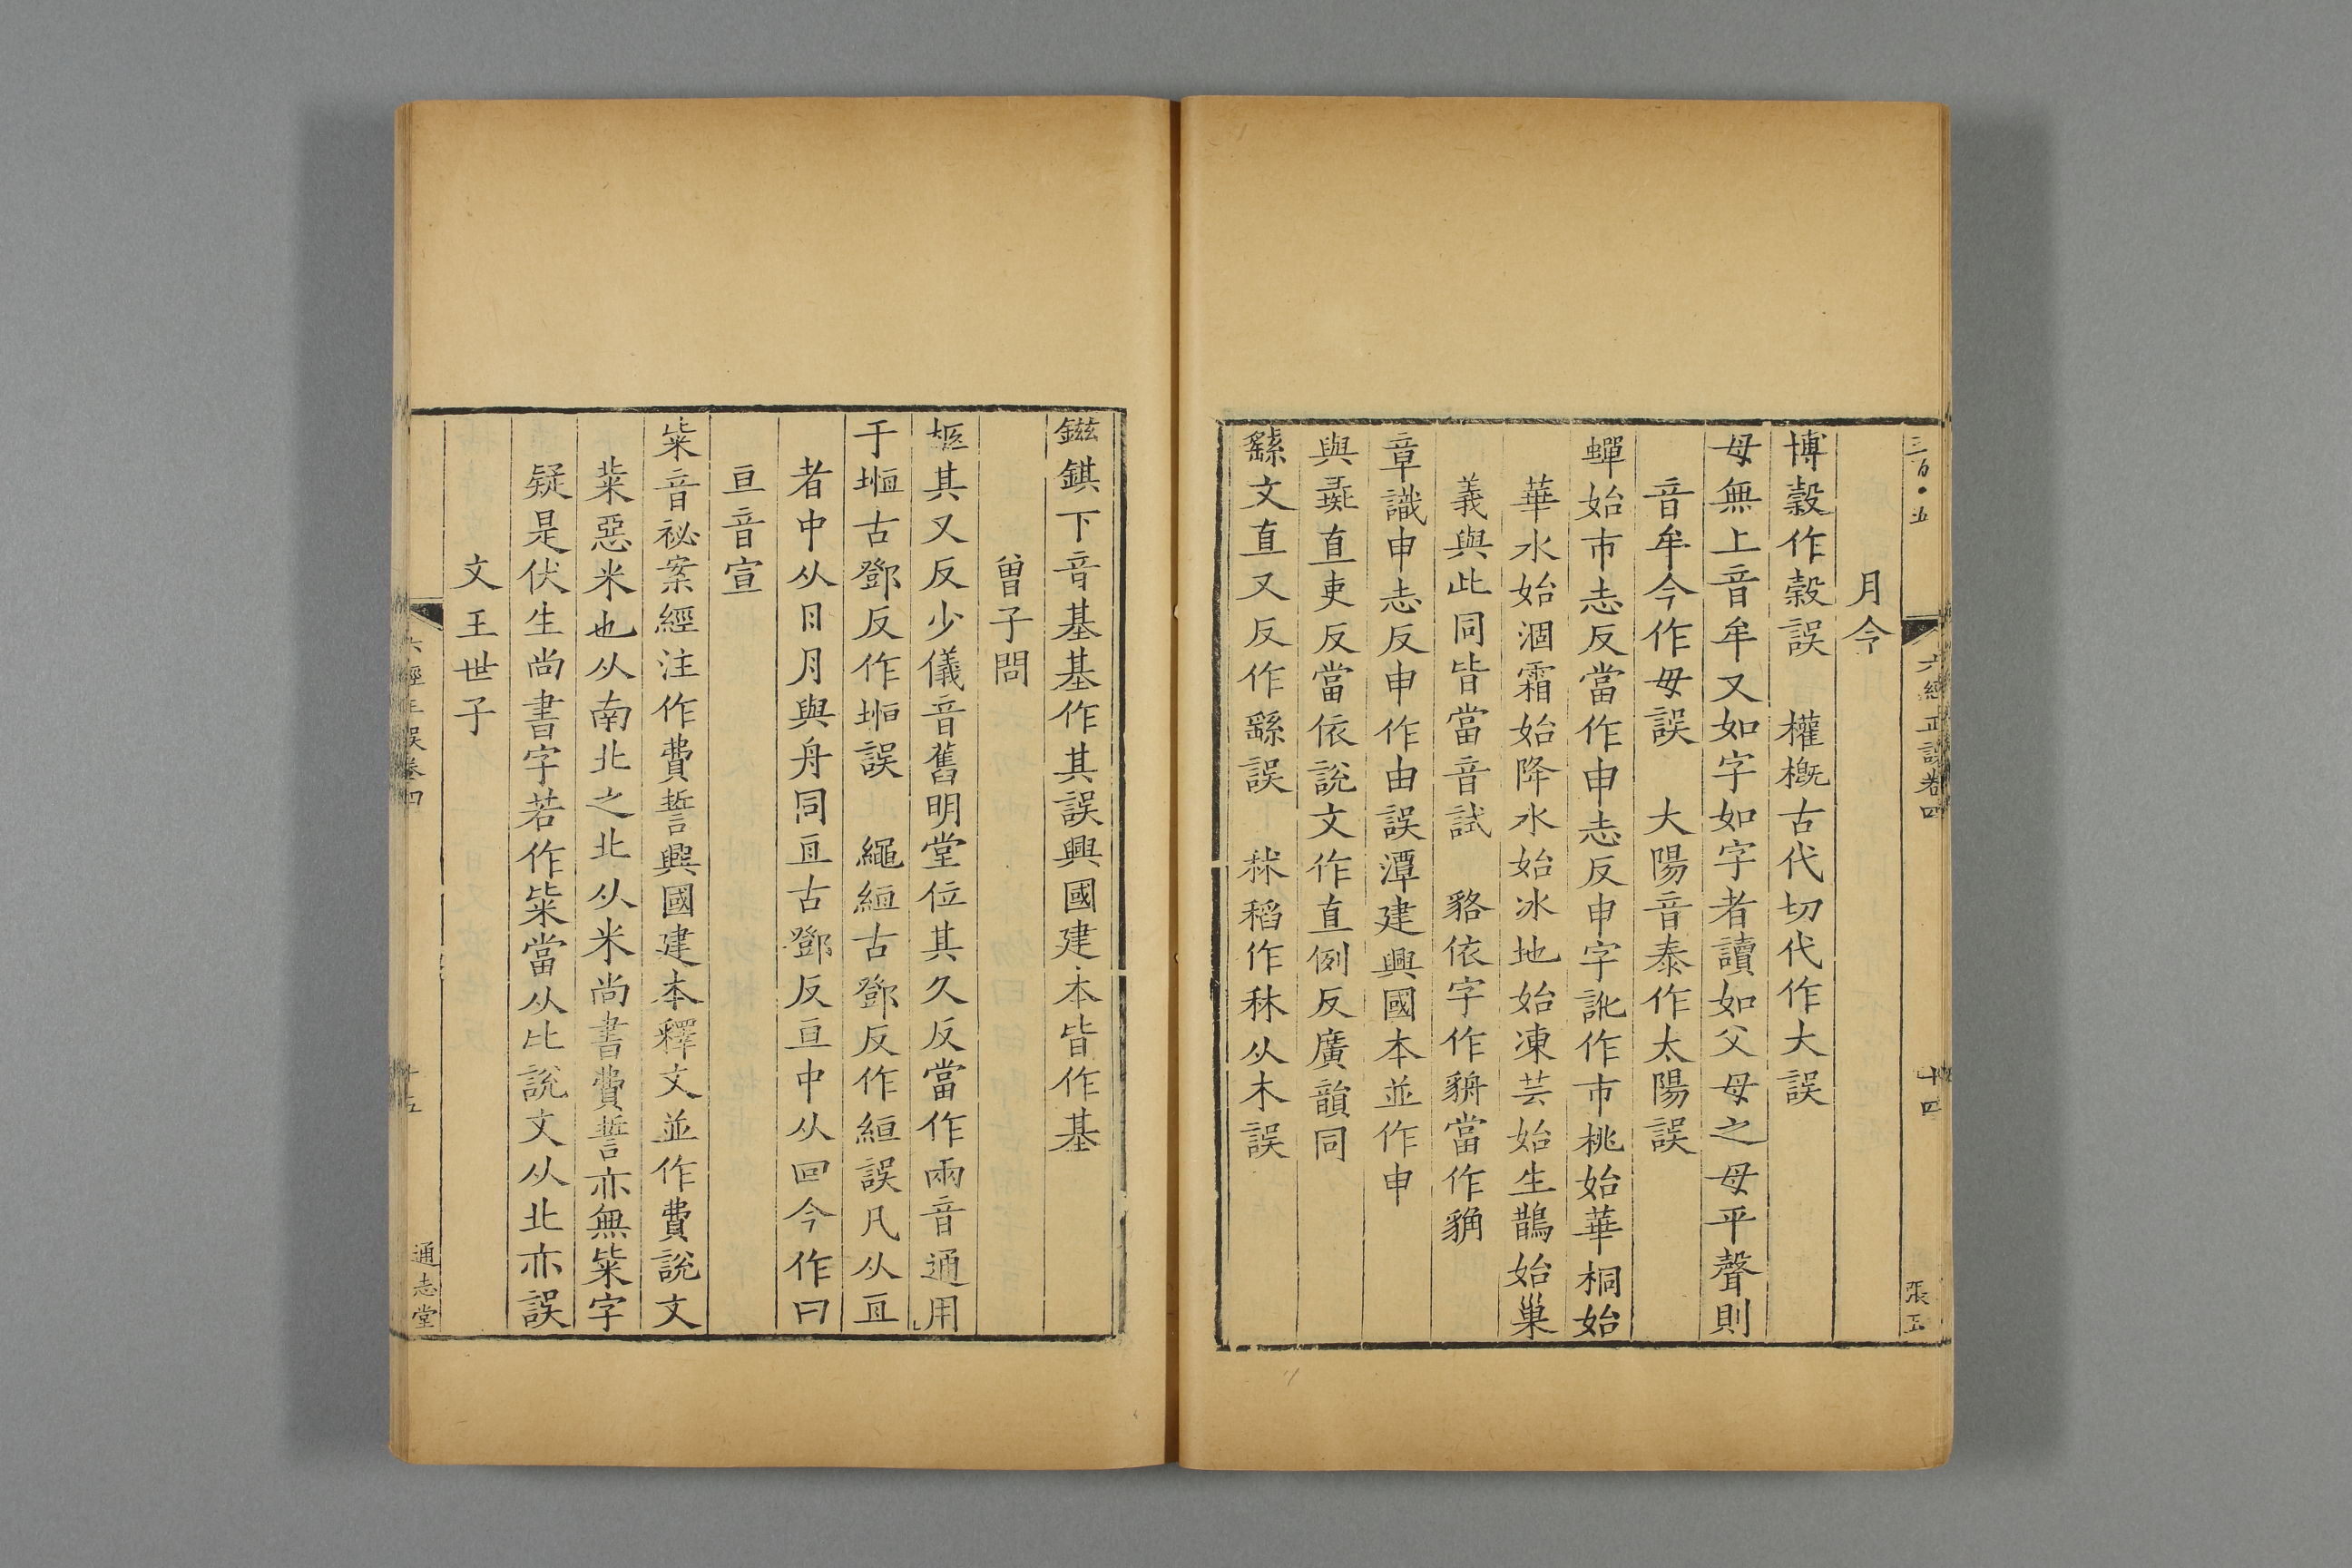 三百·五
六經正誤卷四
十四
張五
月令
博穀作榖誤 權概古代切代作大誤
母無上音牟又如字如字者讀如父母之母平聲則
音牟今作毋誤 大陽音泰作太陽誤
蟬始市志反當作申志反申字訛作市桃始華桐始
華水始涸霜始降水始冰地始凍芸始生鵲始巢
義與此同皆當音試 貉依字作貈當作貈
章識申志反申作由誤潭建興國本並作申
與彘直吏反當依說文作直例反廣韻同
文直又反作繇誤 秫稻作秫从木誤
鎡錤下音基基作其誤興國建本皆作基
曾子問
柩其又反少儀音舊明堂位其久反當作兩音通用
于堩古鄧反作堩誤 繩緪古鄧反作絚誤凡从亙
者中从月月與舟同亙古鄧反亘中从回今作曰
亘音宣
粊音祕案經注作費誓興國建本釋文並作費說文
粊惡米也从南北之北从米尚書費誓亦無粊字
疑是伏生尚書字若作粊當从比說文从北亦誤
文王世子
六經正誤卷四
十五
通志堂